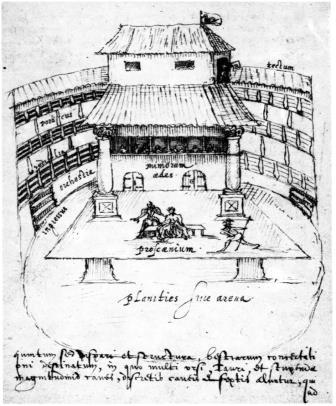 tectum
porticus
sedilia
orchestra
ingressus
mimorum
ædes
proscænium
planities sive arena
quintum sed dispari et structura, bestiarum concertati
oni destinatum, in quo multi ursi, tauri, et stupendæ
magnitudinis canes, discretis caveis et septis aluntur, qui
ad